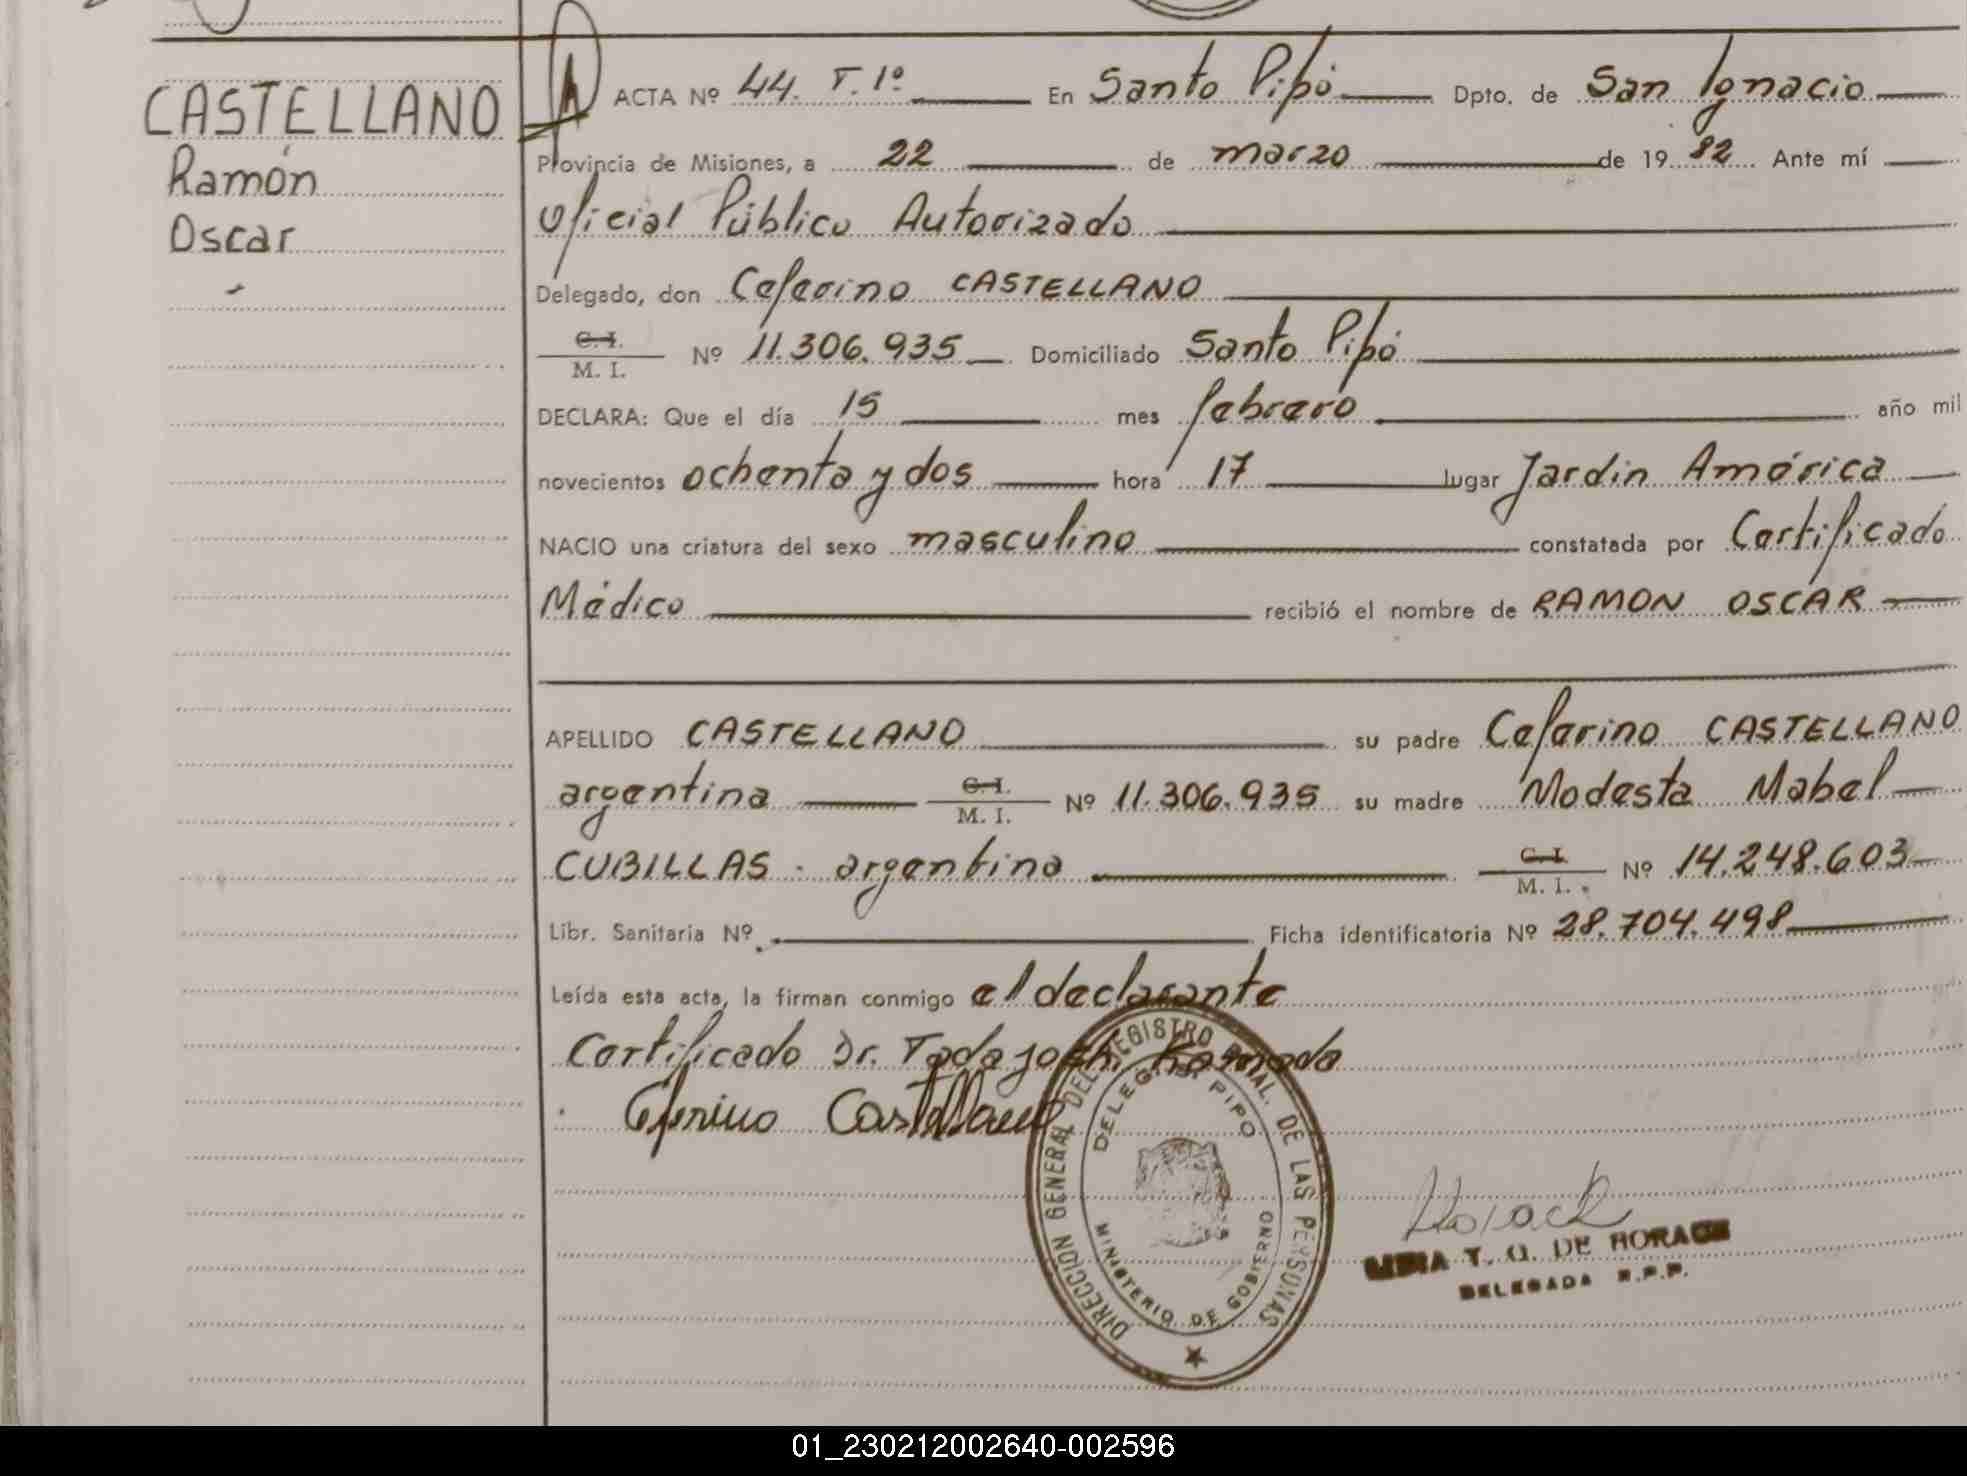 CASTELLANO
Ramón
Oscar
ACTA Nº 44. T. 1º En Santo Pipó Dpto. de San Ignacio
Provincia de Misiones, a 22 de marzo de 1982 Ante mí
Oficial Público Autorizado
Delegado, don Ceferino CASTELLANO
C. I.
M. I. Nº 11.306.935 Domiciliado Santo Pipó
DECLARA: Que el día 15 mes febrero año mil
novecientos ochenta y dos hora 17 lugar Jardín América
NACIO una criatura del sexo masculino constatada por Certificado
Médico recibió el nombre de RAMON OSCAR
APELLIDO CASTELLANO su padre Ceferino CASTELLANO
argentina C. I. M. I. Nº 11.306.935 su madre Modesta Mabel
CUBILLAS. argentina C. I. M. I. Nº 14.248.603
Libr. Sanitaria Nº Ficha identificatoria Nº 28.704.498
Leída esta acta, la firman conmigo el declarante
Certificado Dr. Kamada
Ceferino Castellano
DIRECCION GENERAL DEL REGISTRO DE LAS PERSONAS
DELEG. PIPO
MINISTERIO DE GOBIERNO
Horack
T. G. DE HORACK
DELEGADA R.P.P.
01_230212002640-002596